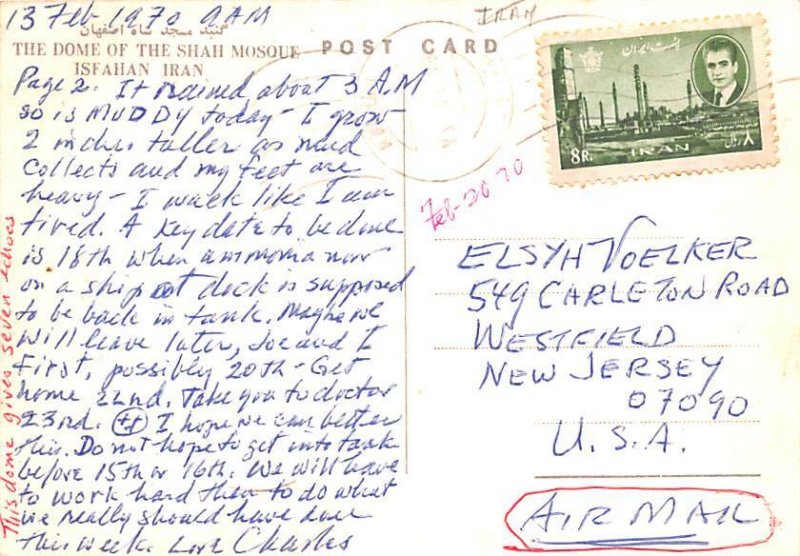 13 Feb-1970 9AM
گنبد مسجد شاه اصفهان
THE DOME OF THE SHAH MOSQUE
ISFAHAN IRAN
POST CARD
IRAN
Page 2. It rained about 3 AM
so is MUDDY today - I grow
2 inches taller as mud
collects and my feet are
heavy - I walk like I am
tired. A key date to be done
is 18th when ammonia now
on a ship at dock is supposed
to be back in tank. Maybe we
will leave later, Joe and I
First, possibly 20th - Get
home 22nd. Take you to doctor
23rd. ++ I hope we can better
this. Do not hope to get into tank
before 15th or 16th. We will have
to work hard then to do what
we really should have done
this week. Love Charles
This dome gives seven echoes
پست ایران
8R.
IRAN
۸ ریال
Feb-20 70
ELSYH VOELKER
549 CARLETON ROAD
WESTFIELD
NEW JERSEY
07090
U.S.A.
AIR MAIL